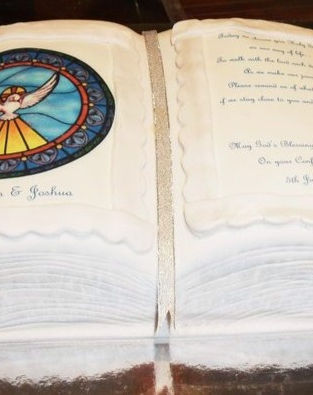 & Joshua
Today we
as our way of life.
To walk with the lord each
As we make our jour
Please remind us of what
if we stay close to you and
May God's Blessing
On your Conf
5th Ju